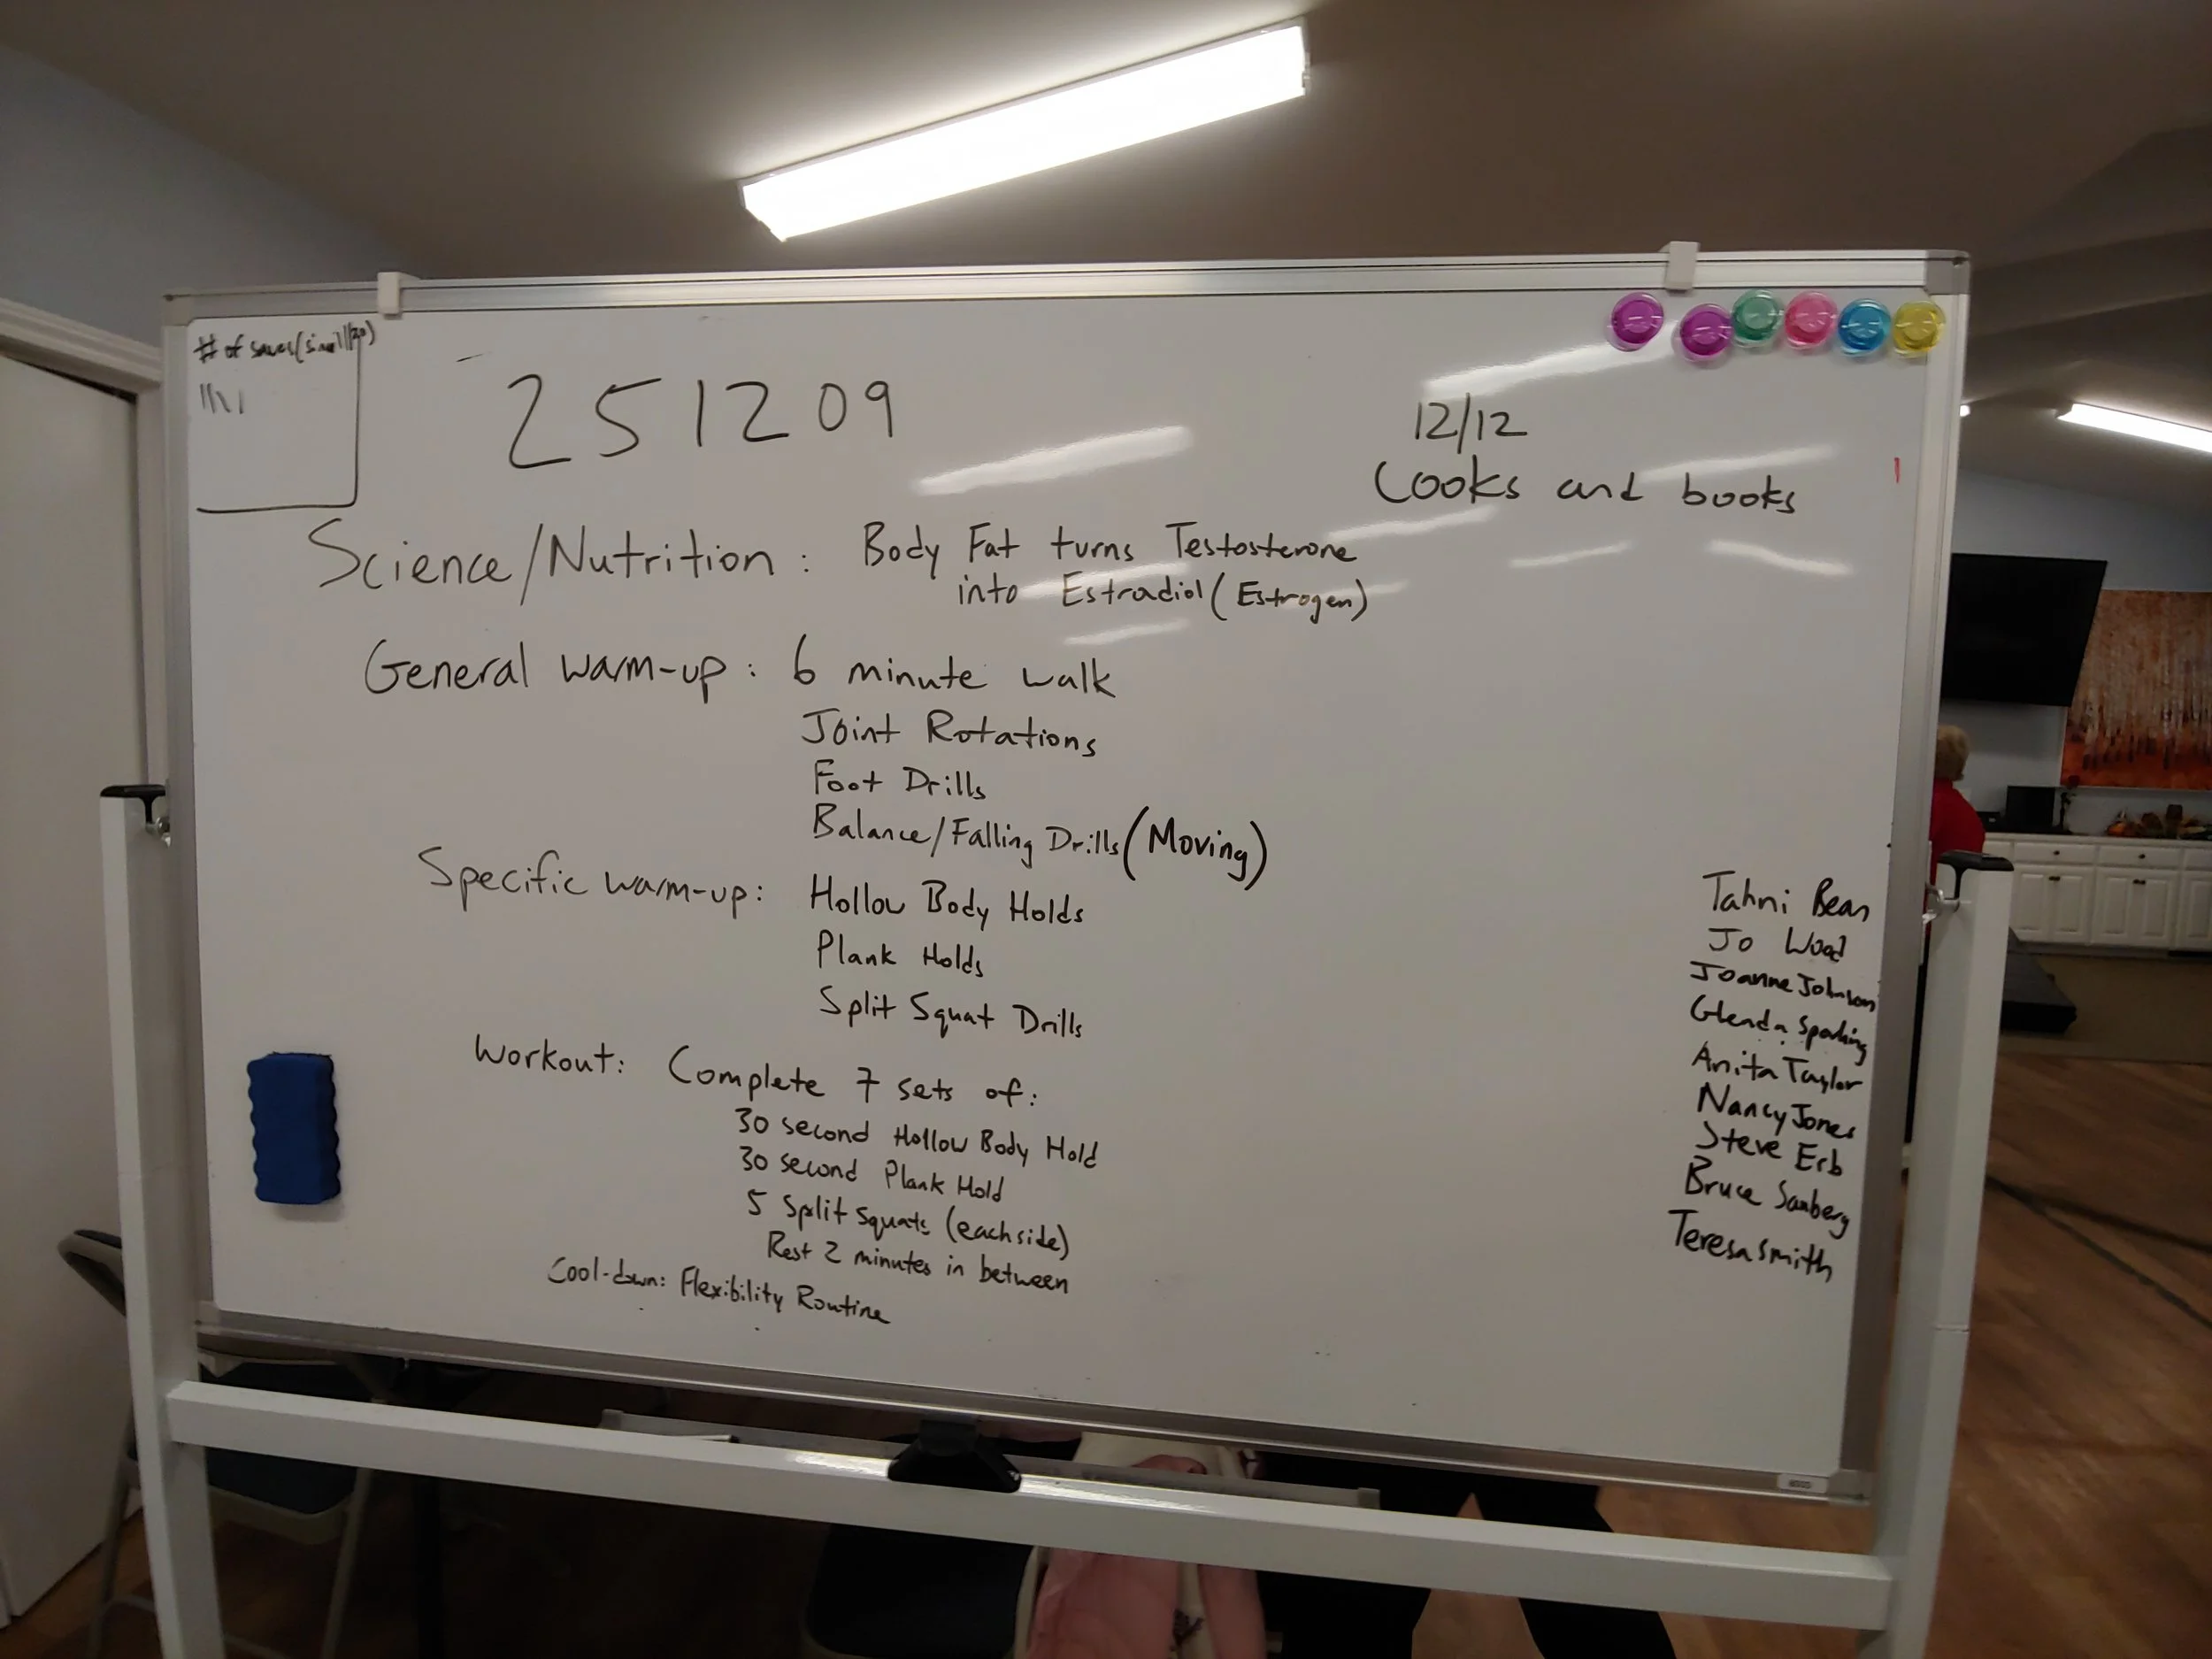 # of saves(since 11/20)
251209
12/12
Cooks and books
Science/Nutrition: Body Fat turns Testosterone
into Estradiol (Estrogen)
General warm-up: 6 minute walk
Joint Rotations
Foot Drills
Balance/Falling Drills (Moving)
Specific warm-up: Hollow Body Holds
Plank Holds
Split Squat Drills
Workout: Complete 7 sets of:
30 second Hollow Body Hold
30 second Plank Hold
5 Split Squats (each side)
Rest 2 minutes in between
Cool-down: Flexibility Routine
Tahni Bean
Jo Wood
Joanne Johnson
Glenda
Anita Taylor
Nancy Jones
Steve Erb
Bruce
Teresa Smith